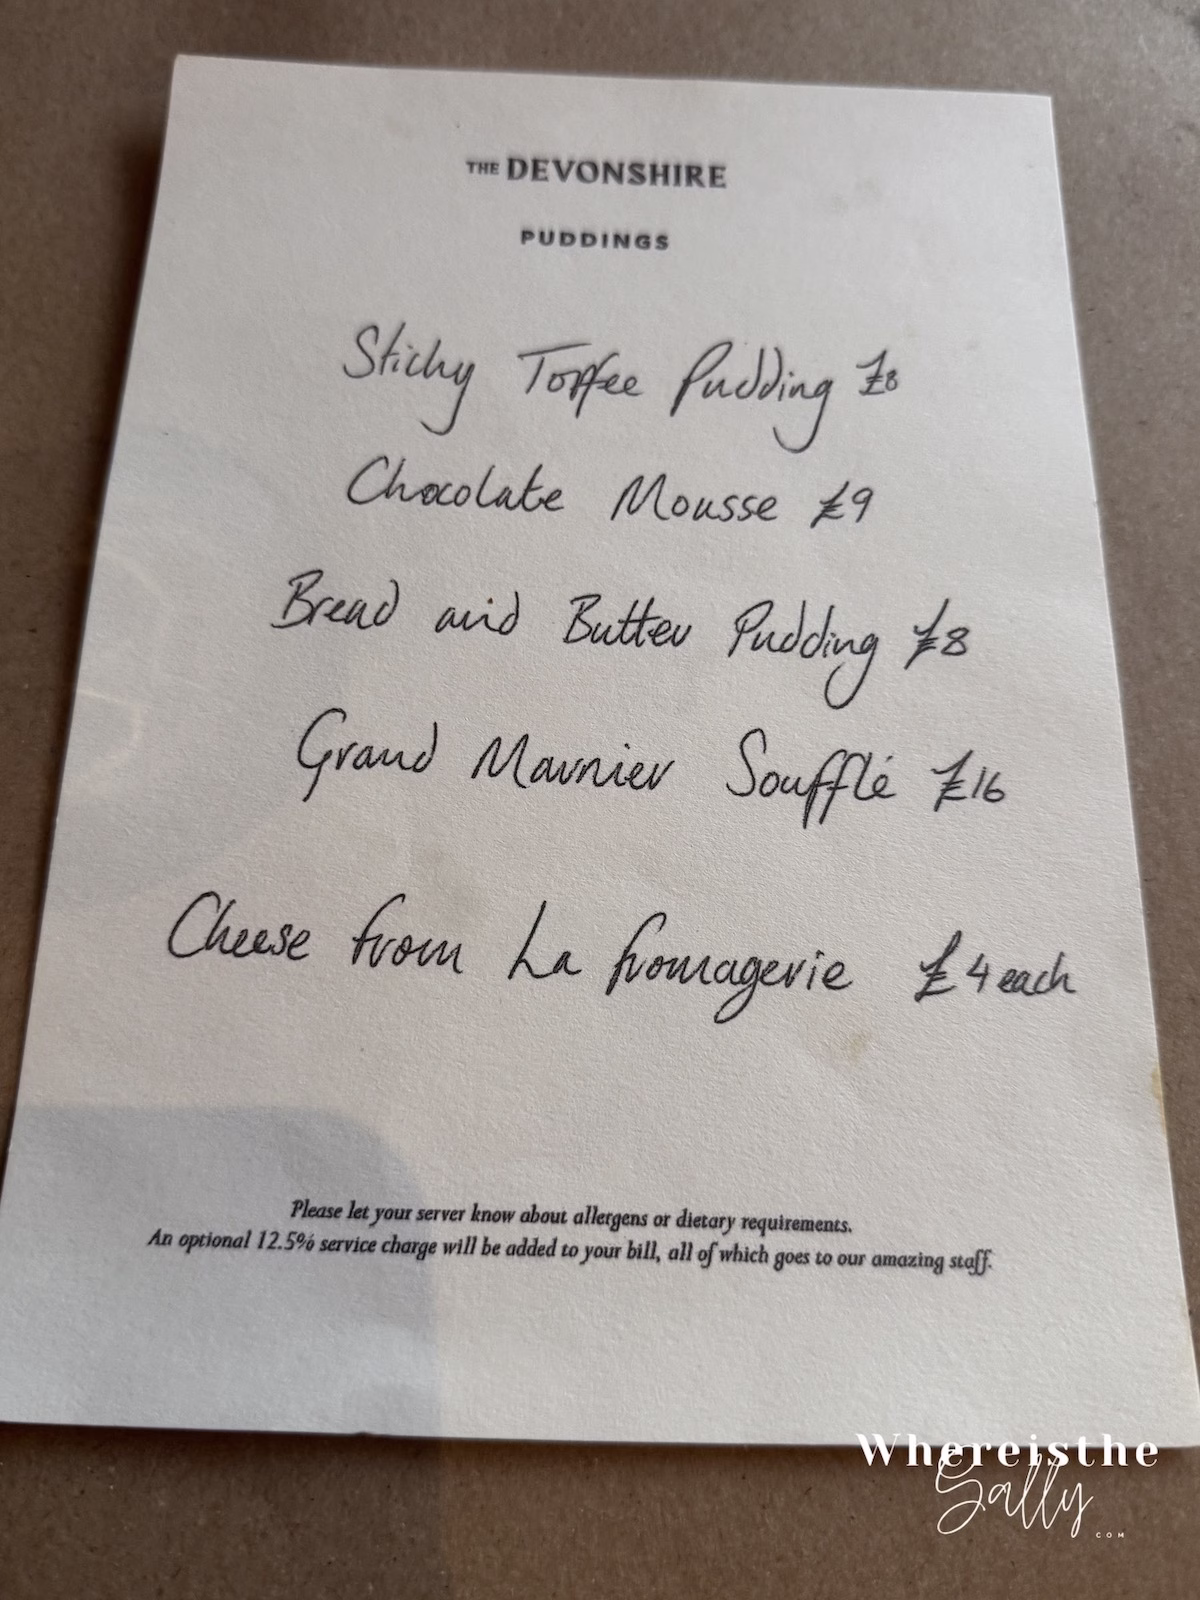 THE DEVONSHIRE
PUDDINGS
Sticky Toffee Pudding £8
Chocolate Mousse £9
Bread and Butter Pudding £8
Grand Marnier Soufflé £16
Cheese from La fromagerie £4 each
Please let your server know about allergens or dietary requirements.
An optional 12.5% service charge will be added to your bill, all of which goes to our amazing staff.
Whereisthe
Sally
.COM